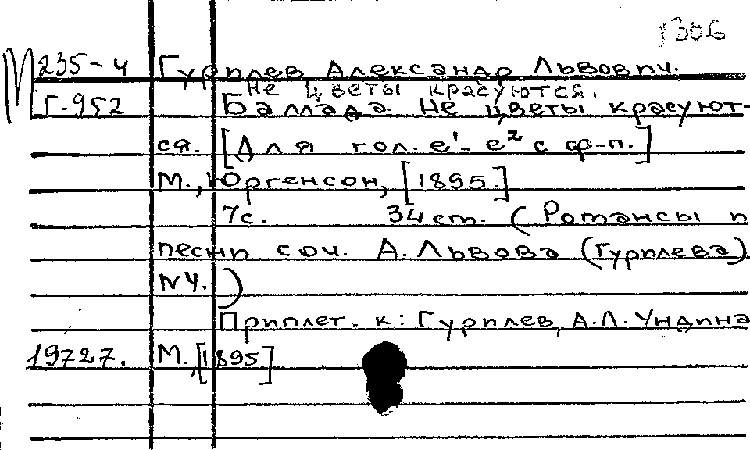 1306
М 235-4 Гурилев Александр Львович.
Не цветы красуются.
Г-952 Баллада. Не цветы красуют-
ся. [Для гол. e¹- e² с ф-п.]
М., Юргенсон, [1895.]
7с. 34 cm. (Романсы и
песни соч. А. Львова (Гурилева)
N4.)
Приплет. к: Гурилев, А.Л. Ундина
19727. М., [1895]